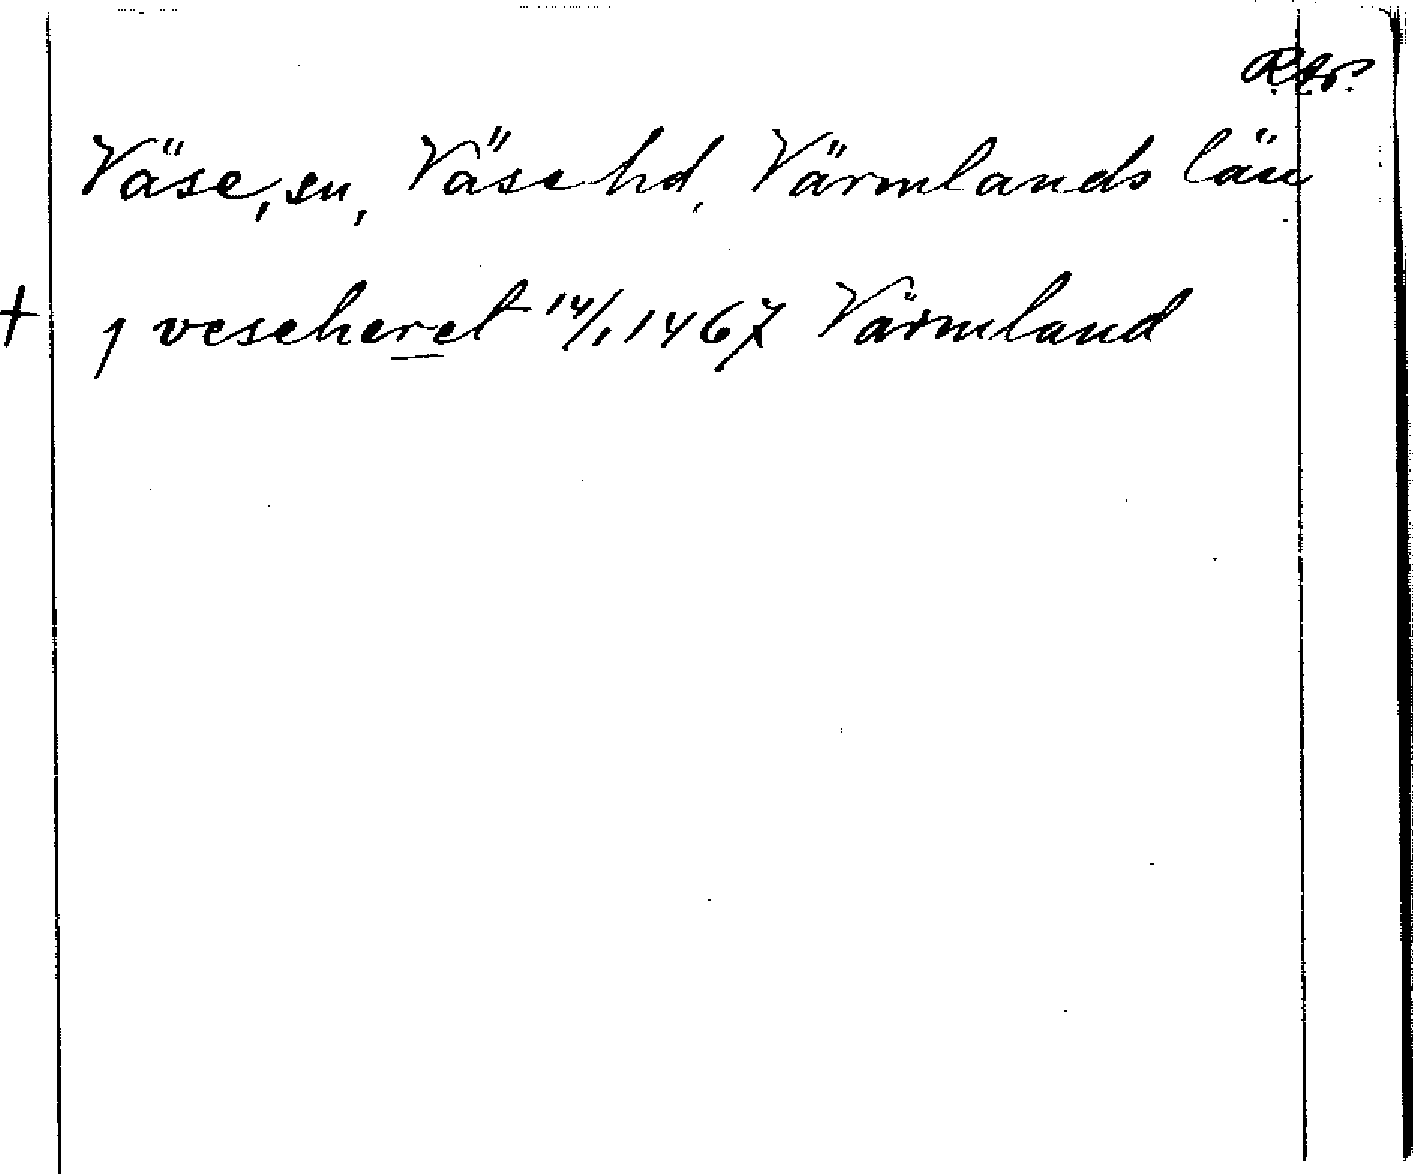 Väse, sn, Väse hd, Värmlands län
+ j veseheret 14/1 1467 Värmland